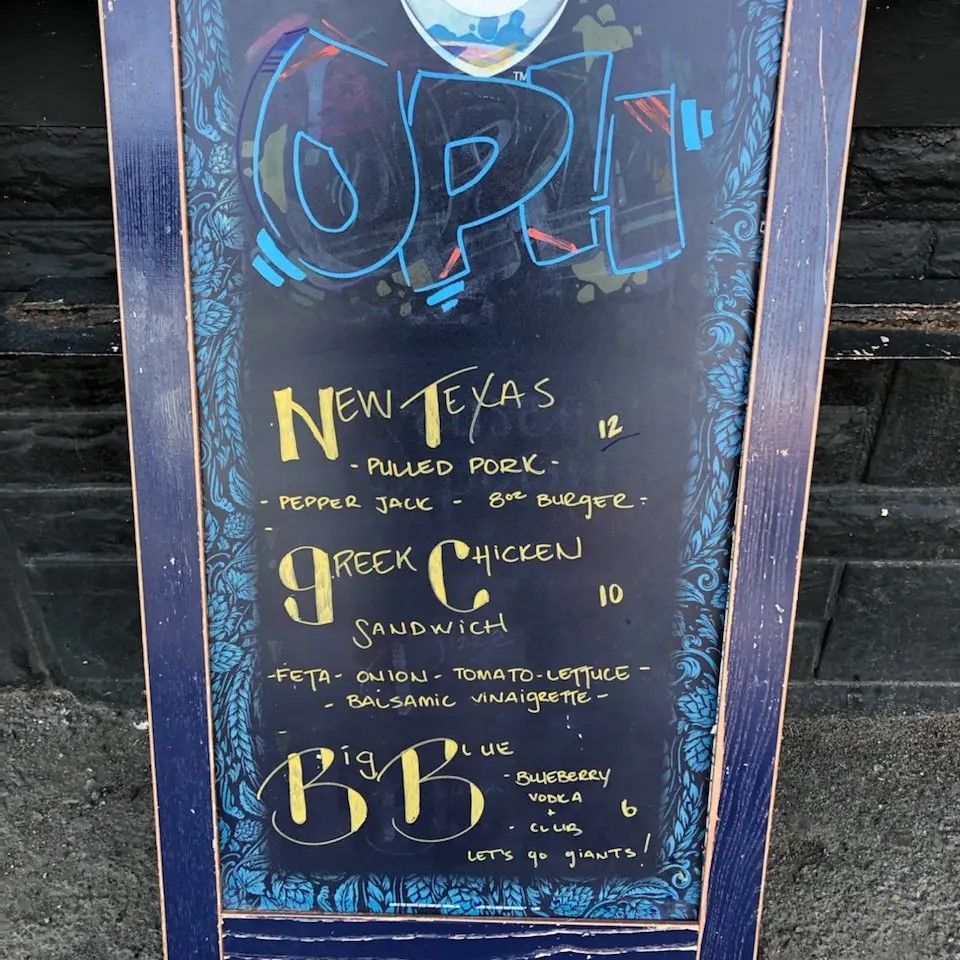 OPH
TM
NEW TEXAS
12
- PULLED PORK -
- PEPPER JACK - 8oz BURGER -
GREEK CHICKEN
10
SANDWICH
- FETA - ONION - TOMATO - LETTUCE -
- BALSAMIC VINAIGRETTE -
Big BLUE
- BLUEBERRY
VODKA
6
+
- CLUB
LET'S go giANTS!